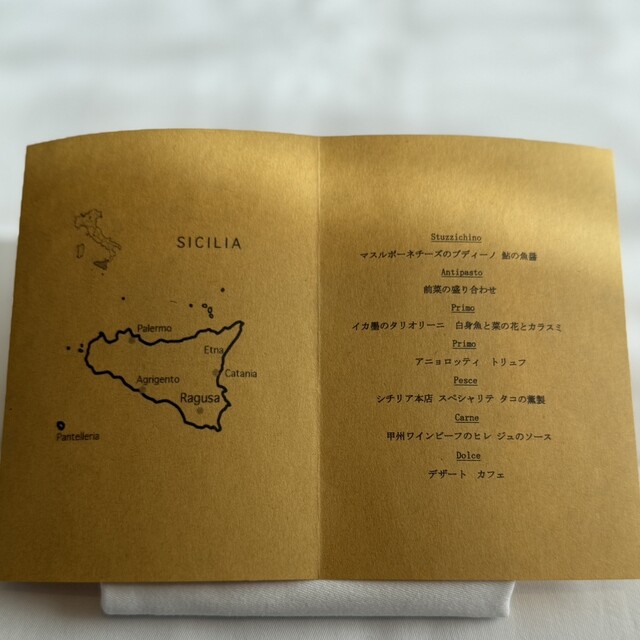 SICILIA
Palermo
Etna
Catania
Agrigento
Ragusa
Pantelleria
Stuzzichino
マスルポーネチーズのブディーノ 鮎の魚醤
Antipasto
前菜の盛り合わせ
Primo
イカ墨のタリオリーニ 白身魚と菜の花とカラスミ
Primo
アニョロッティ トリュフ
Pesce
シチリア本店 スペシャリテ タコの薫製
Carne
甲州ワインビーフのヒレ ジュのソース
Dolce
デザート カフェ